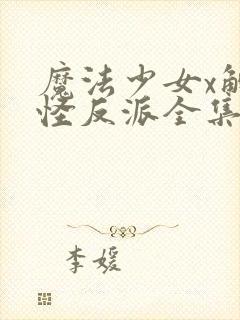 魔法少女x触
怪反派全集
李媛